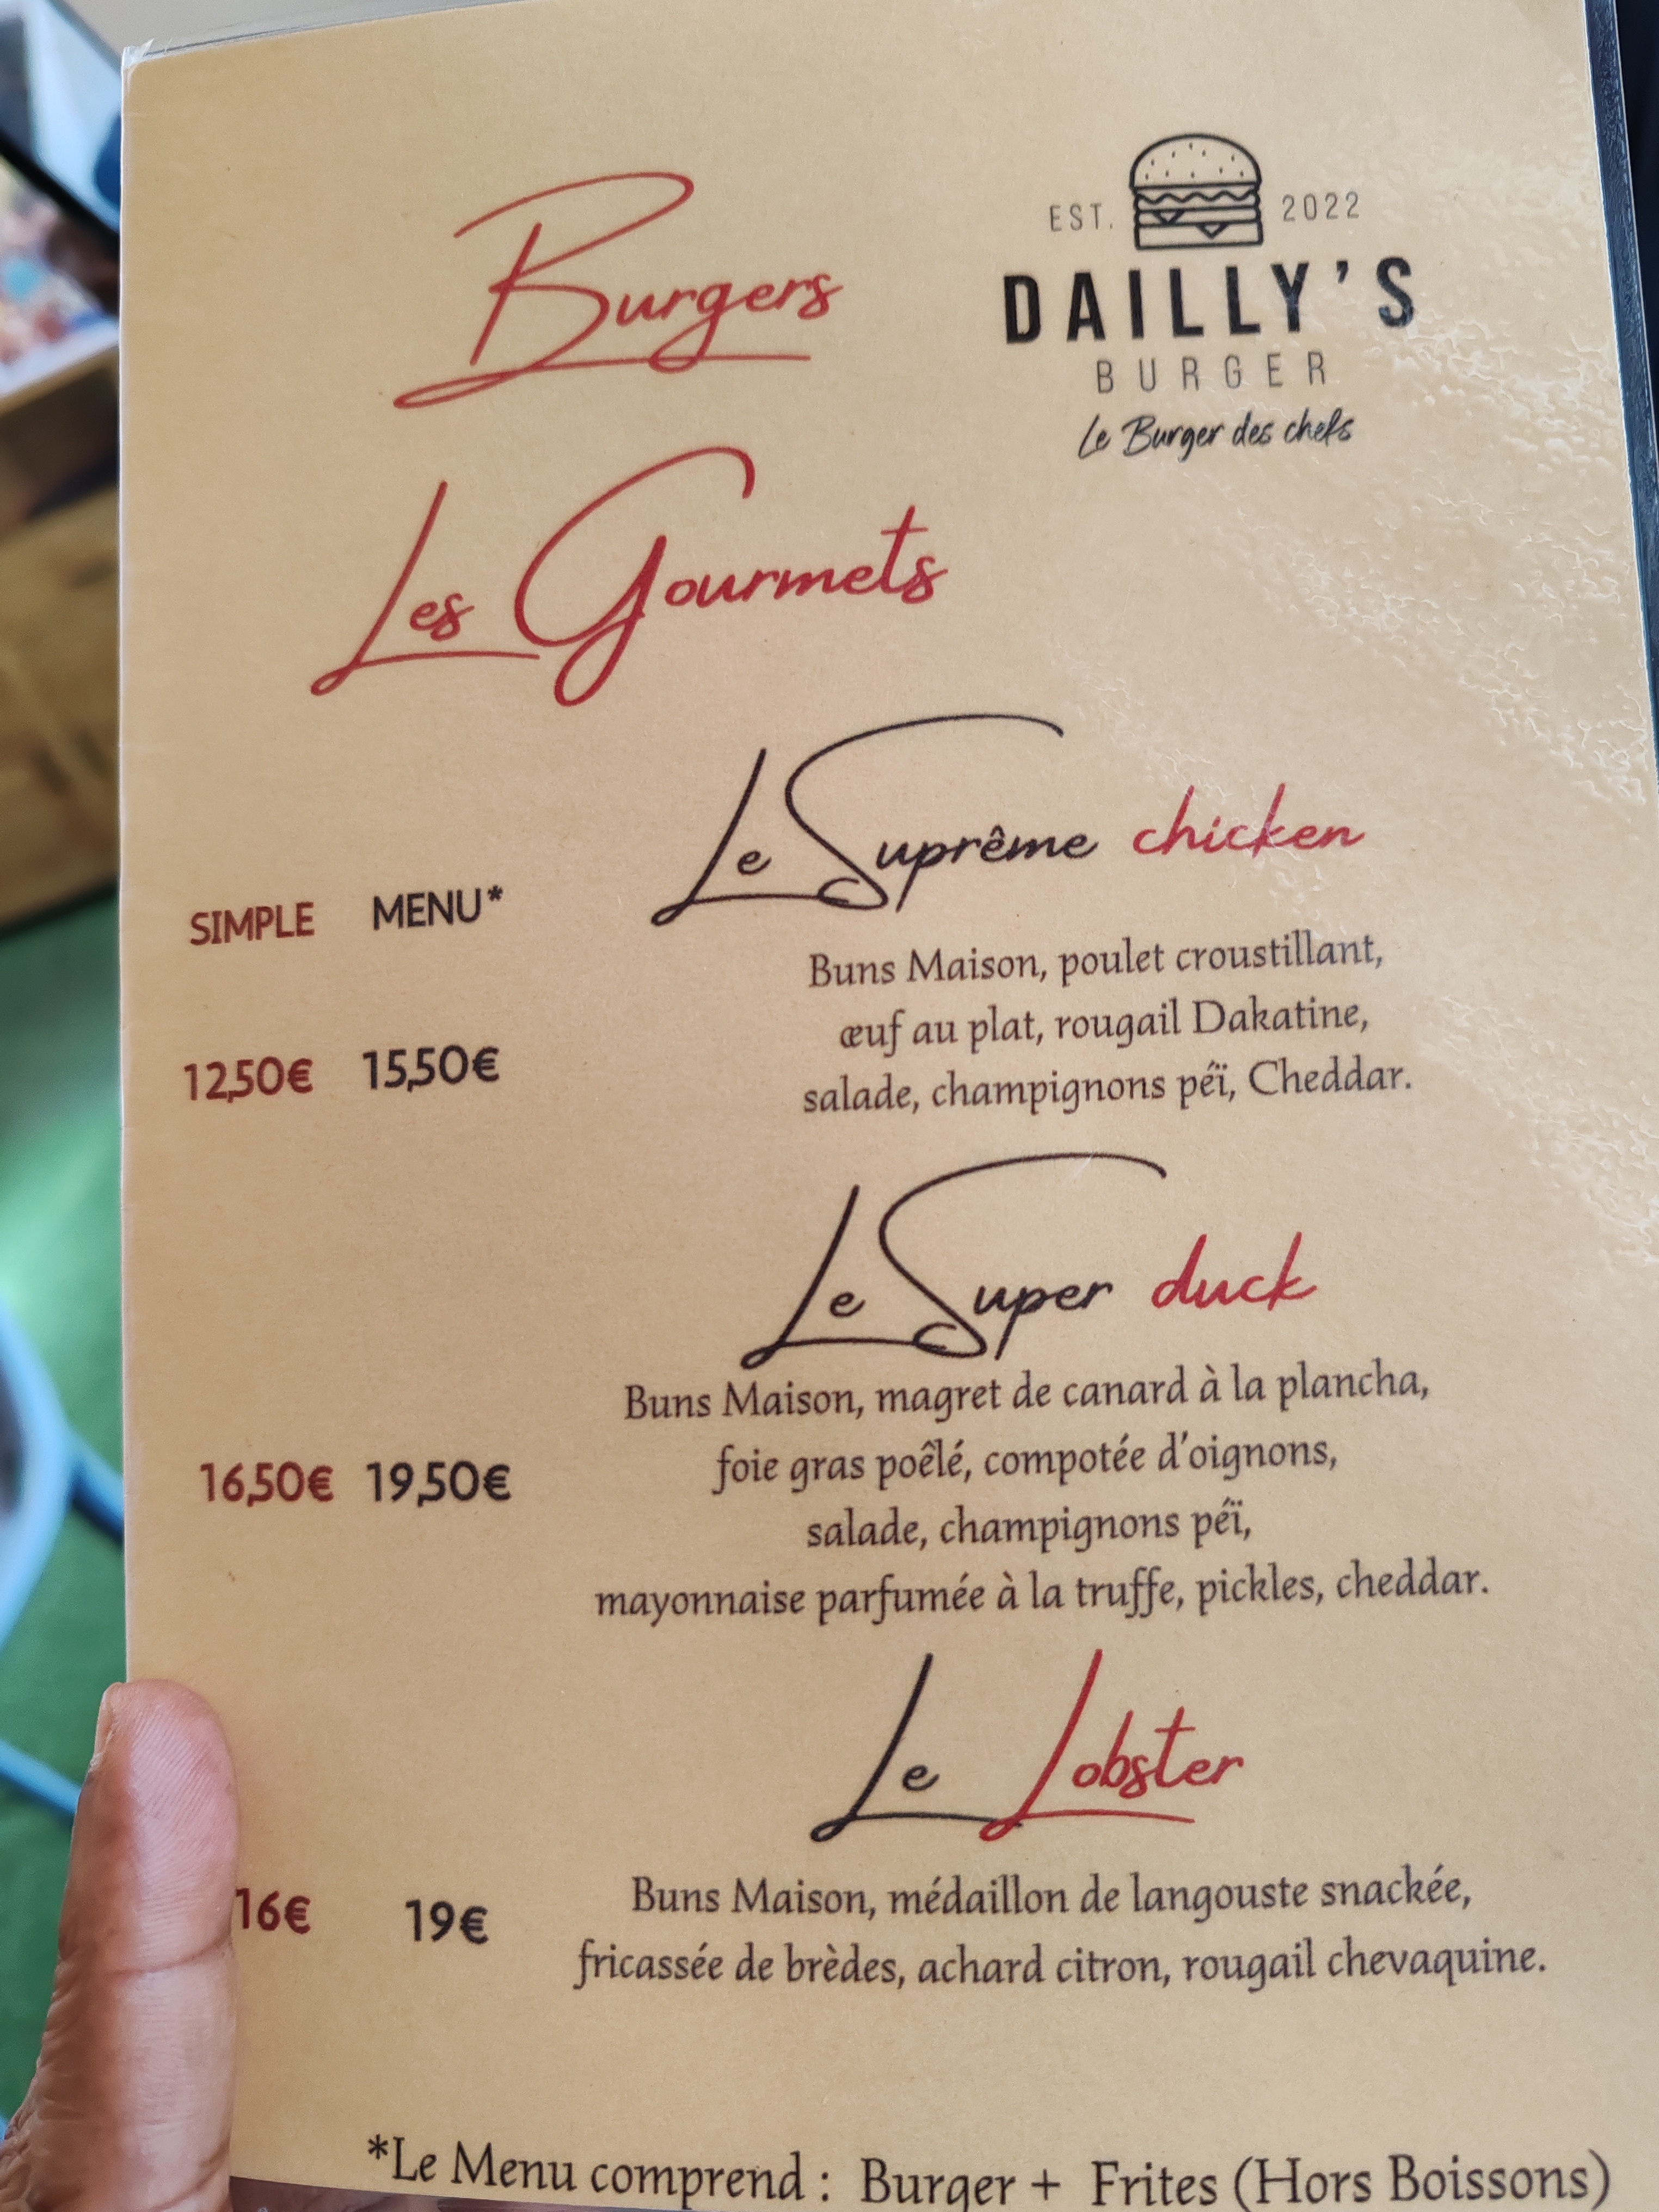 Burgers
EST. 2022
DAILLY'S
BURGER
Le Burger des chefs
Les Gourmets
Le Suprême chicken
SIMPLE MENU*
Buns Maison, poulet croustillant,
œuf au plat, rougail Dakatine,
salade, champignons péï, Cheddar.
12,50€ 15,50€
Le Super duck
Buns Maison, magret de canard à la plancha,
foie gras poêlé, compotée d'oignons,
salade, champignons péï,
mayonnaise parfumée à la truffe, pickles, cheddar.
16,50€ 19,50€
Le Lobster
Buns Maison, médaillon de langouste snackée,
fricassée de brèdes, achard citron, rougail chevaquine.
16€ 19€
*Le Menu comprend : Burger + Frites (Hors Boissons)